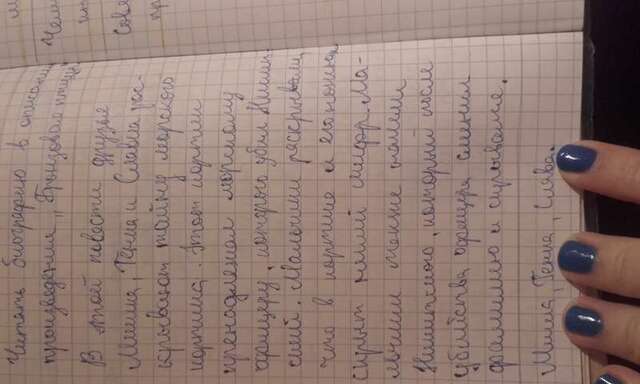 Читать биографию в описании
произведения „Бронзовая птица"
В этой повести друзья
Миша, Генка и Славка рас-
крывают тайну морского
кортика. Этот кортик
пренадлежал морскому
офицеру, которого убил Никит-
ский. Мальчики раскрывали,
что в кортике и его ножнах
скрыт некий шифр. Ма-
льчики также
Никитского, который после
убийства офицера сменил
фамилию и скрывался.
Миша, Генка, Слава.